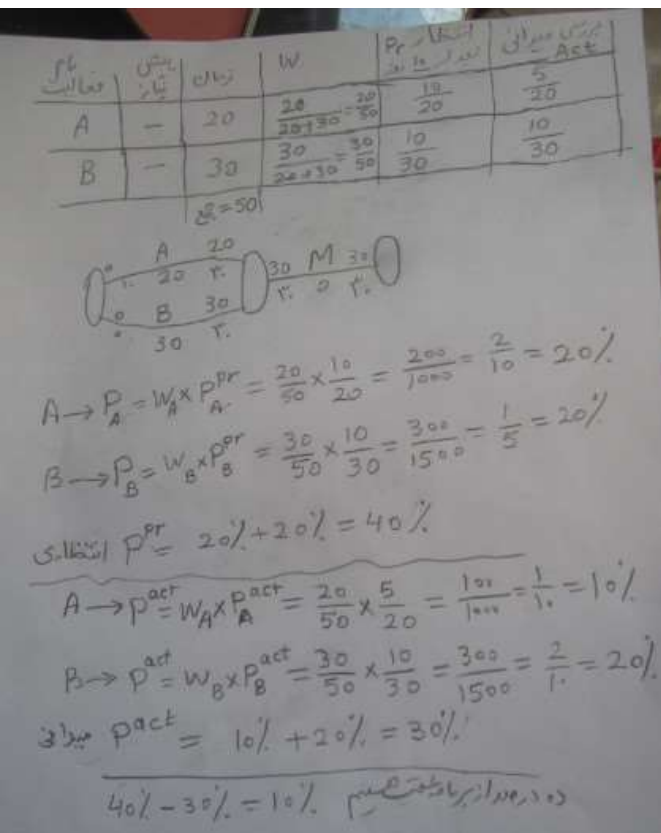 نام فعالیت | پیش نیاز | زمان | W | انتظار Pr بعد از ۱۰ روز | بررسی میدانی Act
A | — | 20 | 20/20+30 = 20/50 | 10/20 | 5/20
B | — | 30 | 30/20+30 = 30/50 | 10/30 | 10/30
=50
A 20 30 M 30
20 ۳۰ ۳۰ ۰ ۳۰
B 30
30 ۳۰
A→ P_A = W_A × P_A^pr = 20/50 × 10/20 = 200/1000 = 2/10 = 20%
B→ P_B = W_B × P_B^pr = 30/50 × 10/30 = 300/1500 = 1/5 = 20%
انتظاری P^pr = 20% + 20% = 40%
A→ P^act = W_A × P_A^act = 20/50 × 5/20 = 100/1000 = 1/10 = 10%
B→ P^act = W_B × P_B^act = 30/50 × 10/30 = 300/1500 = 2/10 = 20%
میدانی P^act = 10% + 20% = 30%
40% - 30% = 10% ده درصد از برنامه عقب هستیم